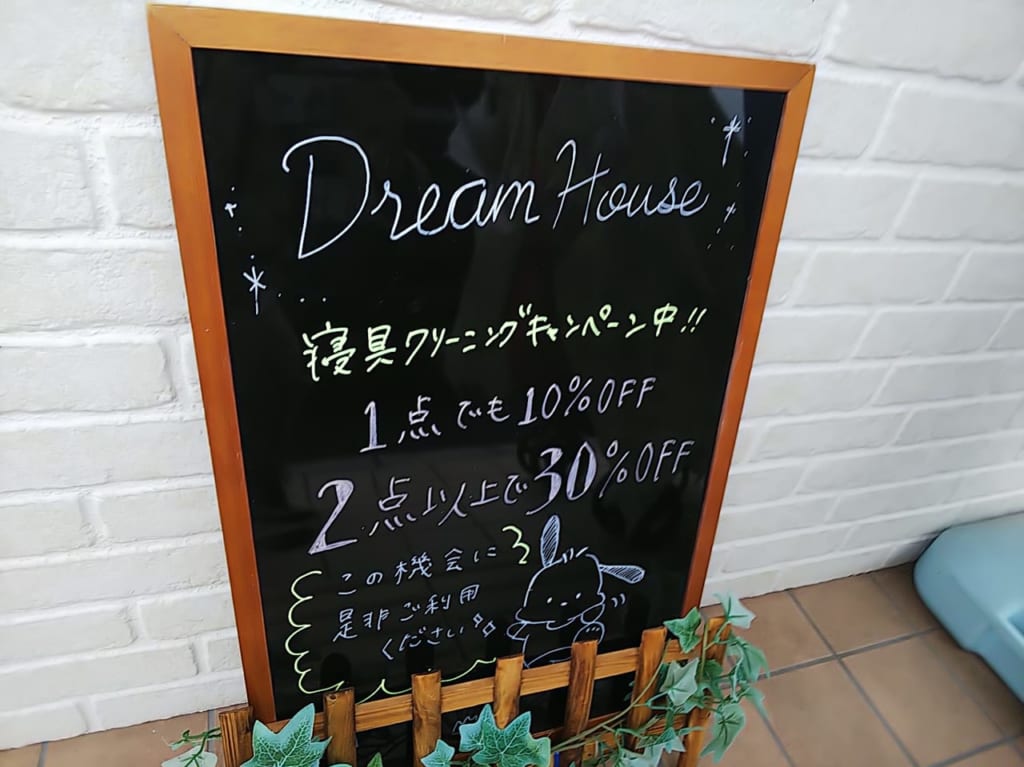 Dream House
寝具クリーニングキャンペーン中!!
1点でも10%OFF
2点以上で30%OFF
この機会に
是非ご利用
ください